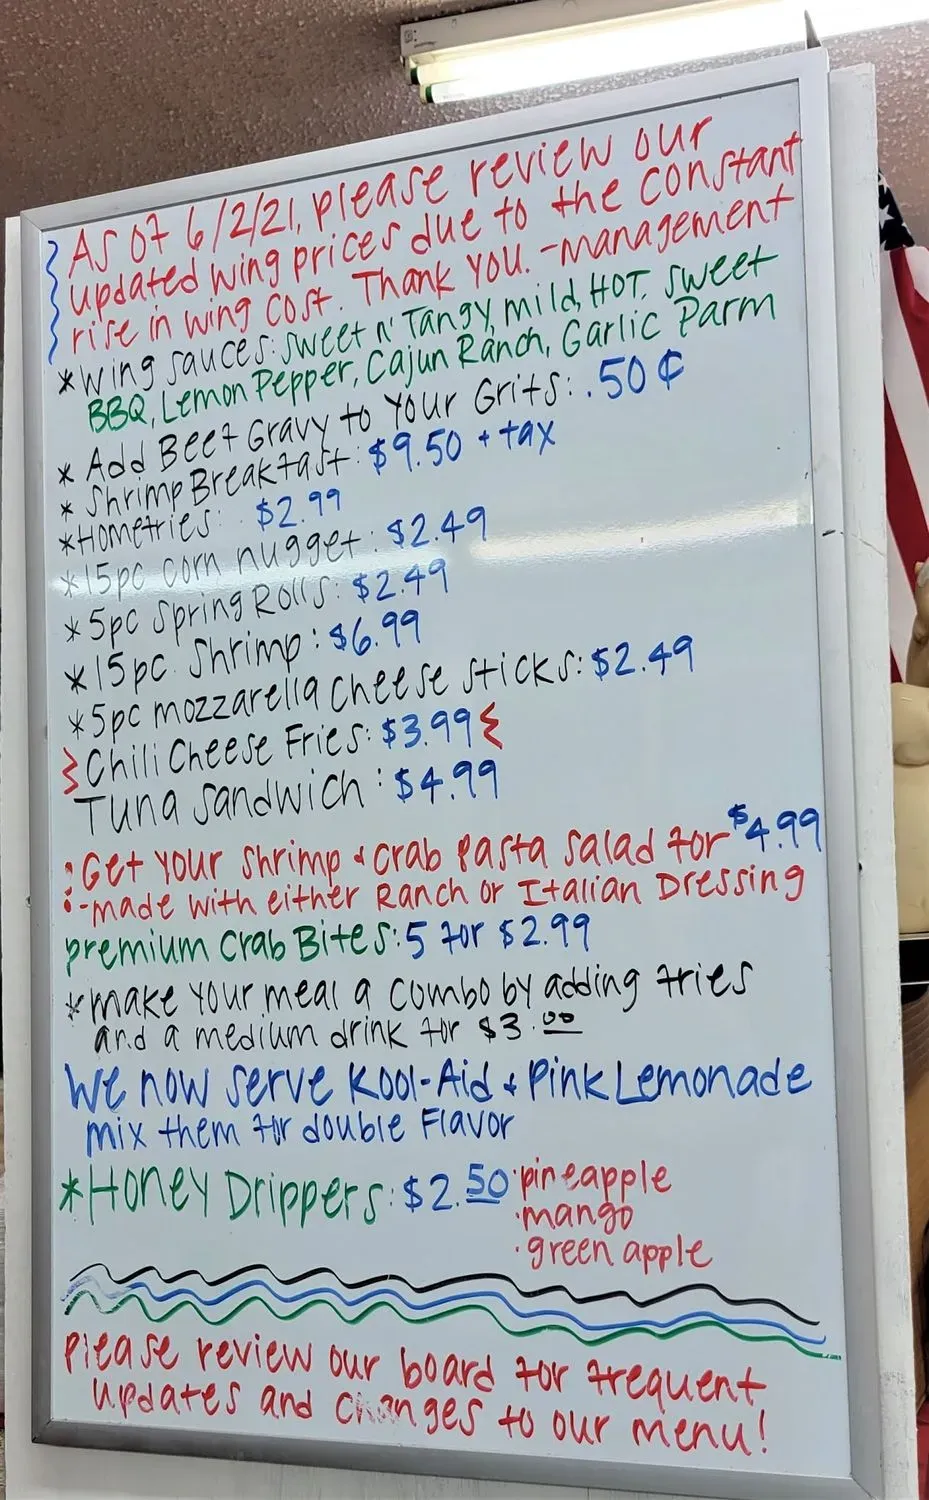 As of 6/2/21, please review our
updated wing prices due to the constant
rise in wing cost. Thank you. -management
*wing sauces: sweet n' Tangy, mild, HOT, sweet
BBQ, Lemon Pepper, Cajun Ranch, Garlic Parm
* Add Beef Gravy to Your Grits: .50¢
* Shrimp Breakfast: $9.50 + tax
*Homefries: $2.99
*15pc corn nugget: $2.49
*5pc Spring Rolls: $2.49
*15pc. Shrimp: $6.99
*5pc mozzarella cheese sticks: $2.49
Chili Cheese Fries: $3.99
Tuna Sandwich: $4.99
:Get your shrimp & crab pasta salad for $4.99
:-made with either Ranch or Italian Dressing
premium Crab Bites: 5 for $2.99
*make your meal a combo by adding fries
and a medium drink for $3.00
We now serve Kool-Aid & Pink Lemonade
mix them for double Flavor
*Honey Drippers: $2.50 ·pineapple
·mango
·green apple
Please review our board for frequent
updates and changes to our menu!